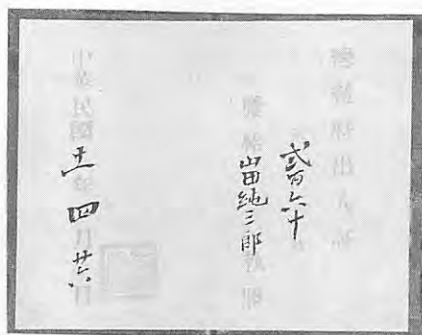 總統府出入證
弍百六十
發給山田純三郎
中華民國十一年四月廿六日